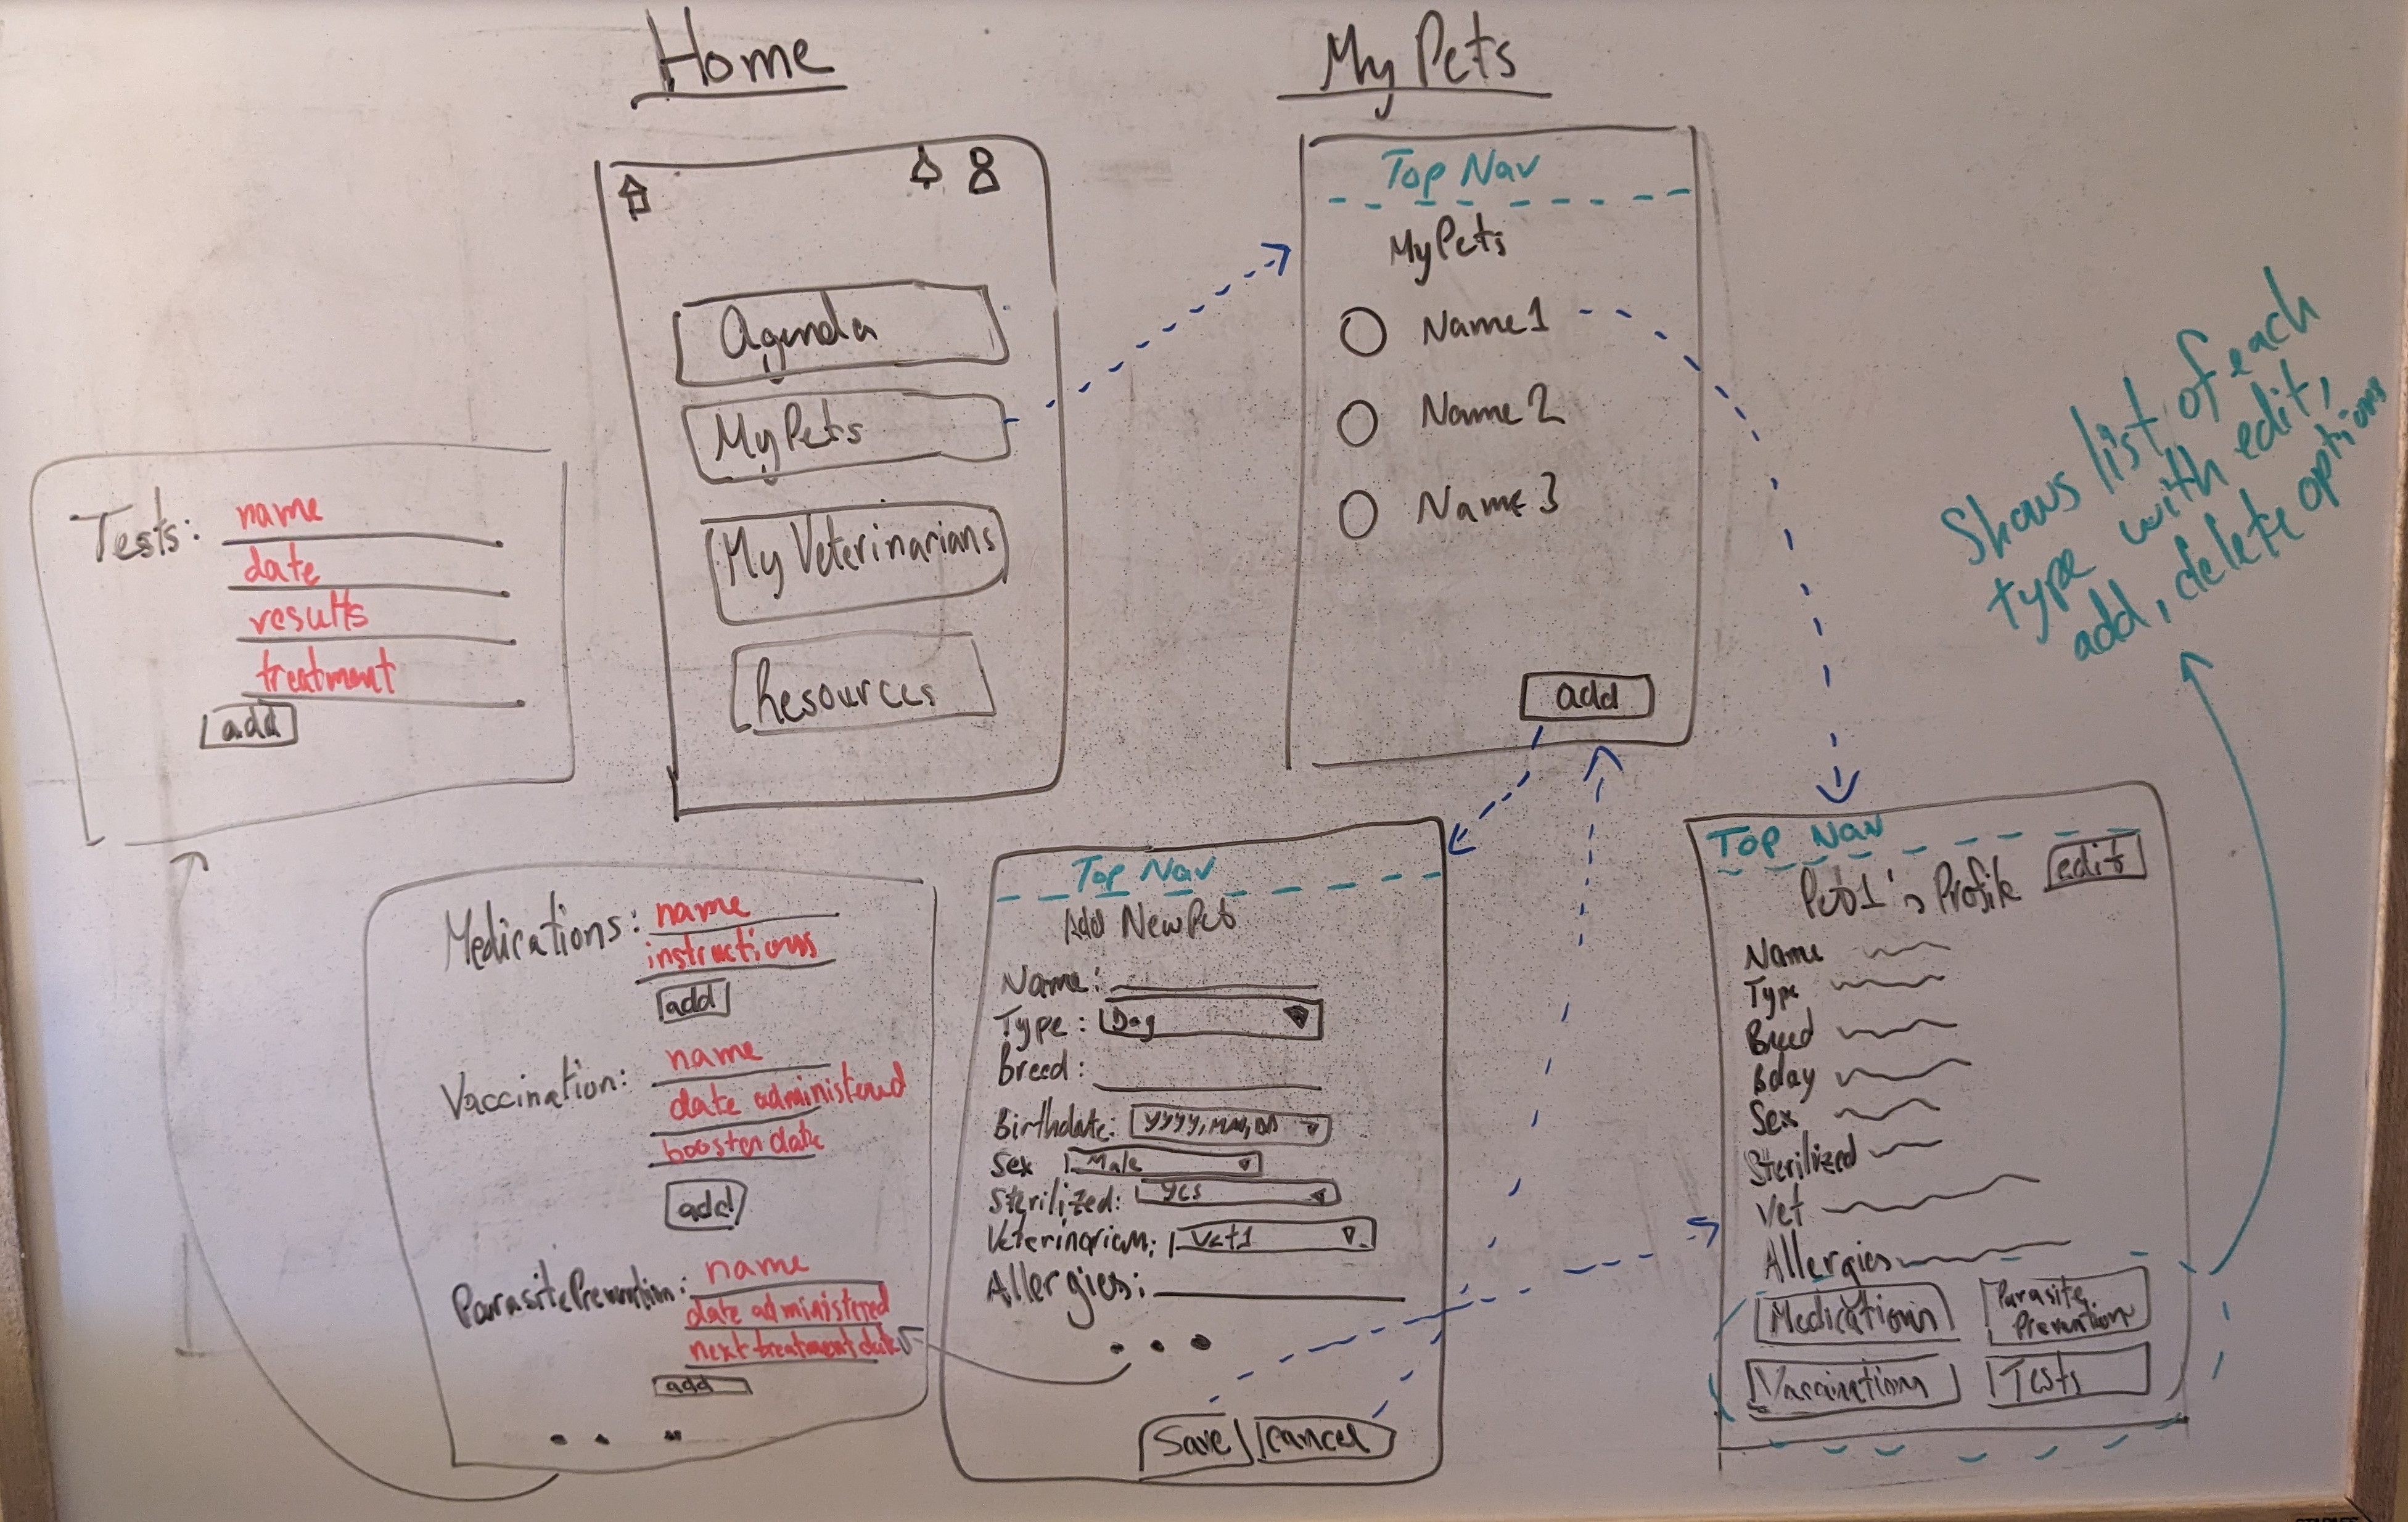 Home
Agenda
My Pets
My Veterinarians
Resources
My Pets
Top Nav
My Pets
Name 1
Name 2
Name 3
add
Shows list of each
type with edit,
add, delete options
Tests:
name
date
results
treatment
add
Medications:
name
instructions
add
Vaccination:
name
date administered
booster date
add
Parasite Prevention:
name
date administered
next treatment date
add
Top Nav
Add New Pet
Name:
Type: Dog
Breed:
Birthdate: YYYY, MM, DD
Sex Male
Sterilized: yes
Veterinarian: Vet1
Allergies:
Save
Cancel
Top Nav
Pet1's Profile
edit
Name
Type
Breed
Bday
Sex
Sterilized
Vet
Allergies
Medications
Parasite
Prevention
Vaccinations
Tests